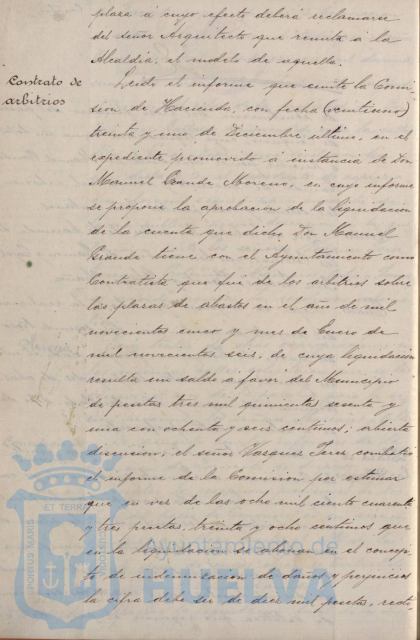 plaza á cuyo efecto deberá reclamarse
del señor Arquitecto que remita á la
Alcaldía, el modelo de aquella.
Contrato de
arbitrios
Leido el informe que emite la Comi-
sion de Hacienda, con fecha (veintiuno)
treinta y uno de Diciembre último, en el
expediente promovido á instancia de Don
Manuel Grande Moreno, en cuyo informe
se propone la aprobación de la liquidación
de la cuenta que dicho Don Manuel
Grande tiene con el Ayuntamiento como
Contratista que fué de los arbitrios sobre
las plazas de abastos en el año de mil
novecientos cinco y mes de Enero de
mil novecientos seis, de cuya liquidación
resulta un saldo á favor del Municipio
de pesetas tres mil quinientas sesenta y
una con ochenta y seis céntimos; abierta
discusion, el señor Vazquez Perez combatió
el informe de la Comision por estimar
que en vez de las ocho mil ciento cuarenta
y tres pesetas, treinta y ocho céntimos que
en la liquidacion se abonan en el concep-
to de indemnizacion de daños y perjuicios
la cifra debe ser de diez mil pesetas, redo-
PORTUS MARIS
ET TERRÆ
Ayuntamiento de
HUELVA